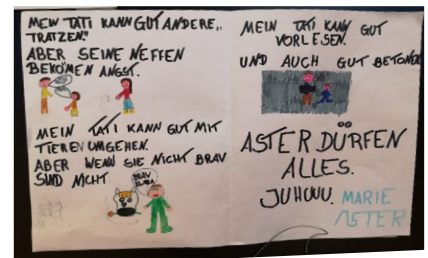 MEIN TATI KANN GUT ANDERE „
TRATZEN."
ABER SEINE NEFFEN
BEKOMEN ANGST.
MEIN TATI KANN GUT MIT
TIEREN UMGEHEN.
ABER WENN SIE NICHT BRAV
SIND NICHT
BRAV
MEIN TATI KANN GUT
VORLESEN.
UND AUCH GUT BETONEN
ASTER DÜRFEN
ALLES.
JUHUUU. MARIE
ASTER